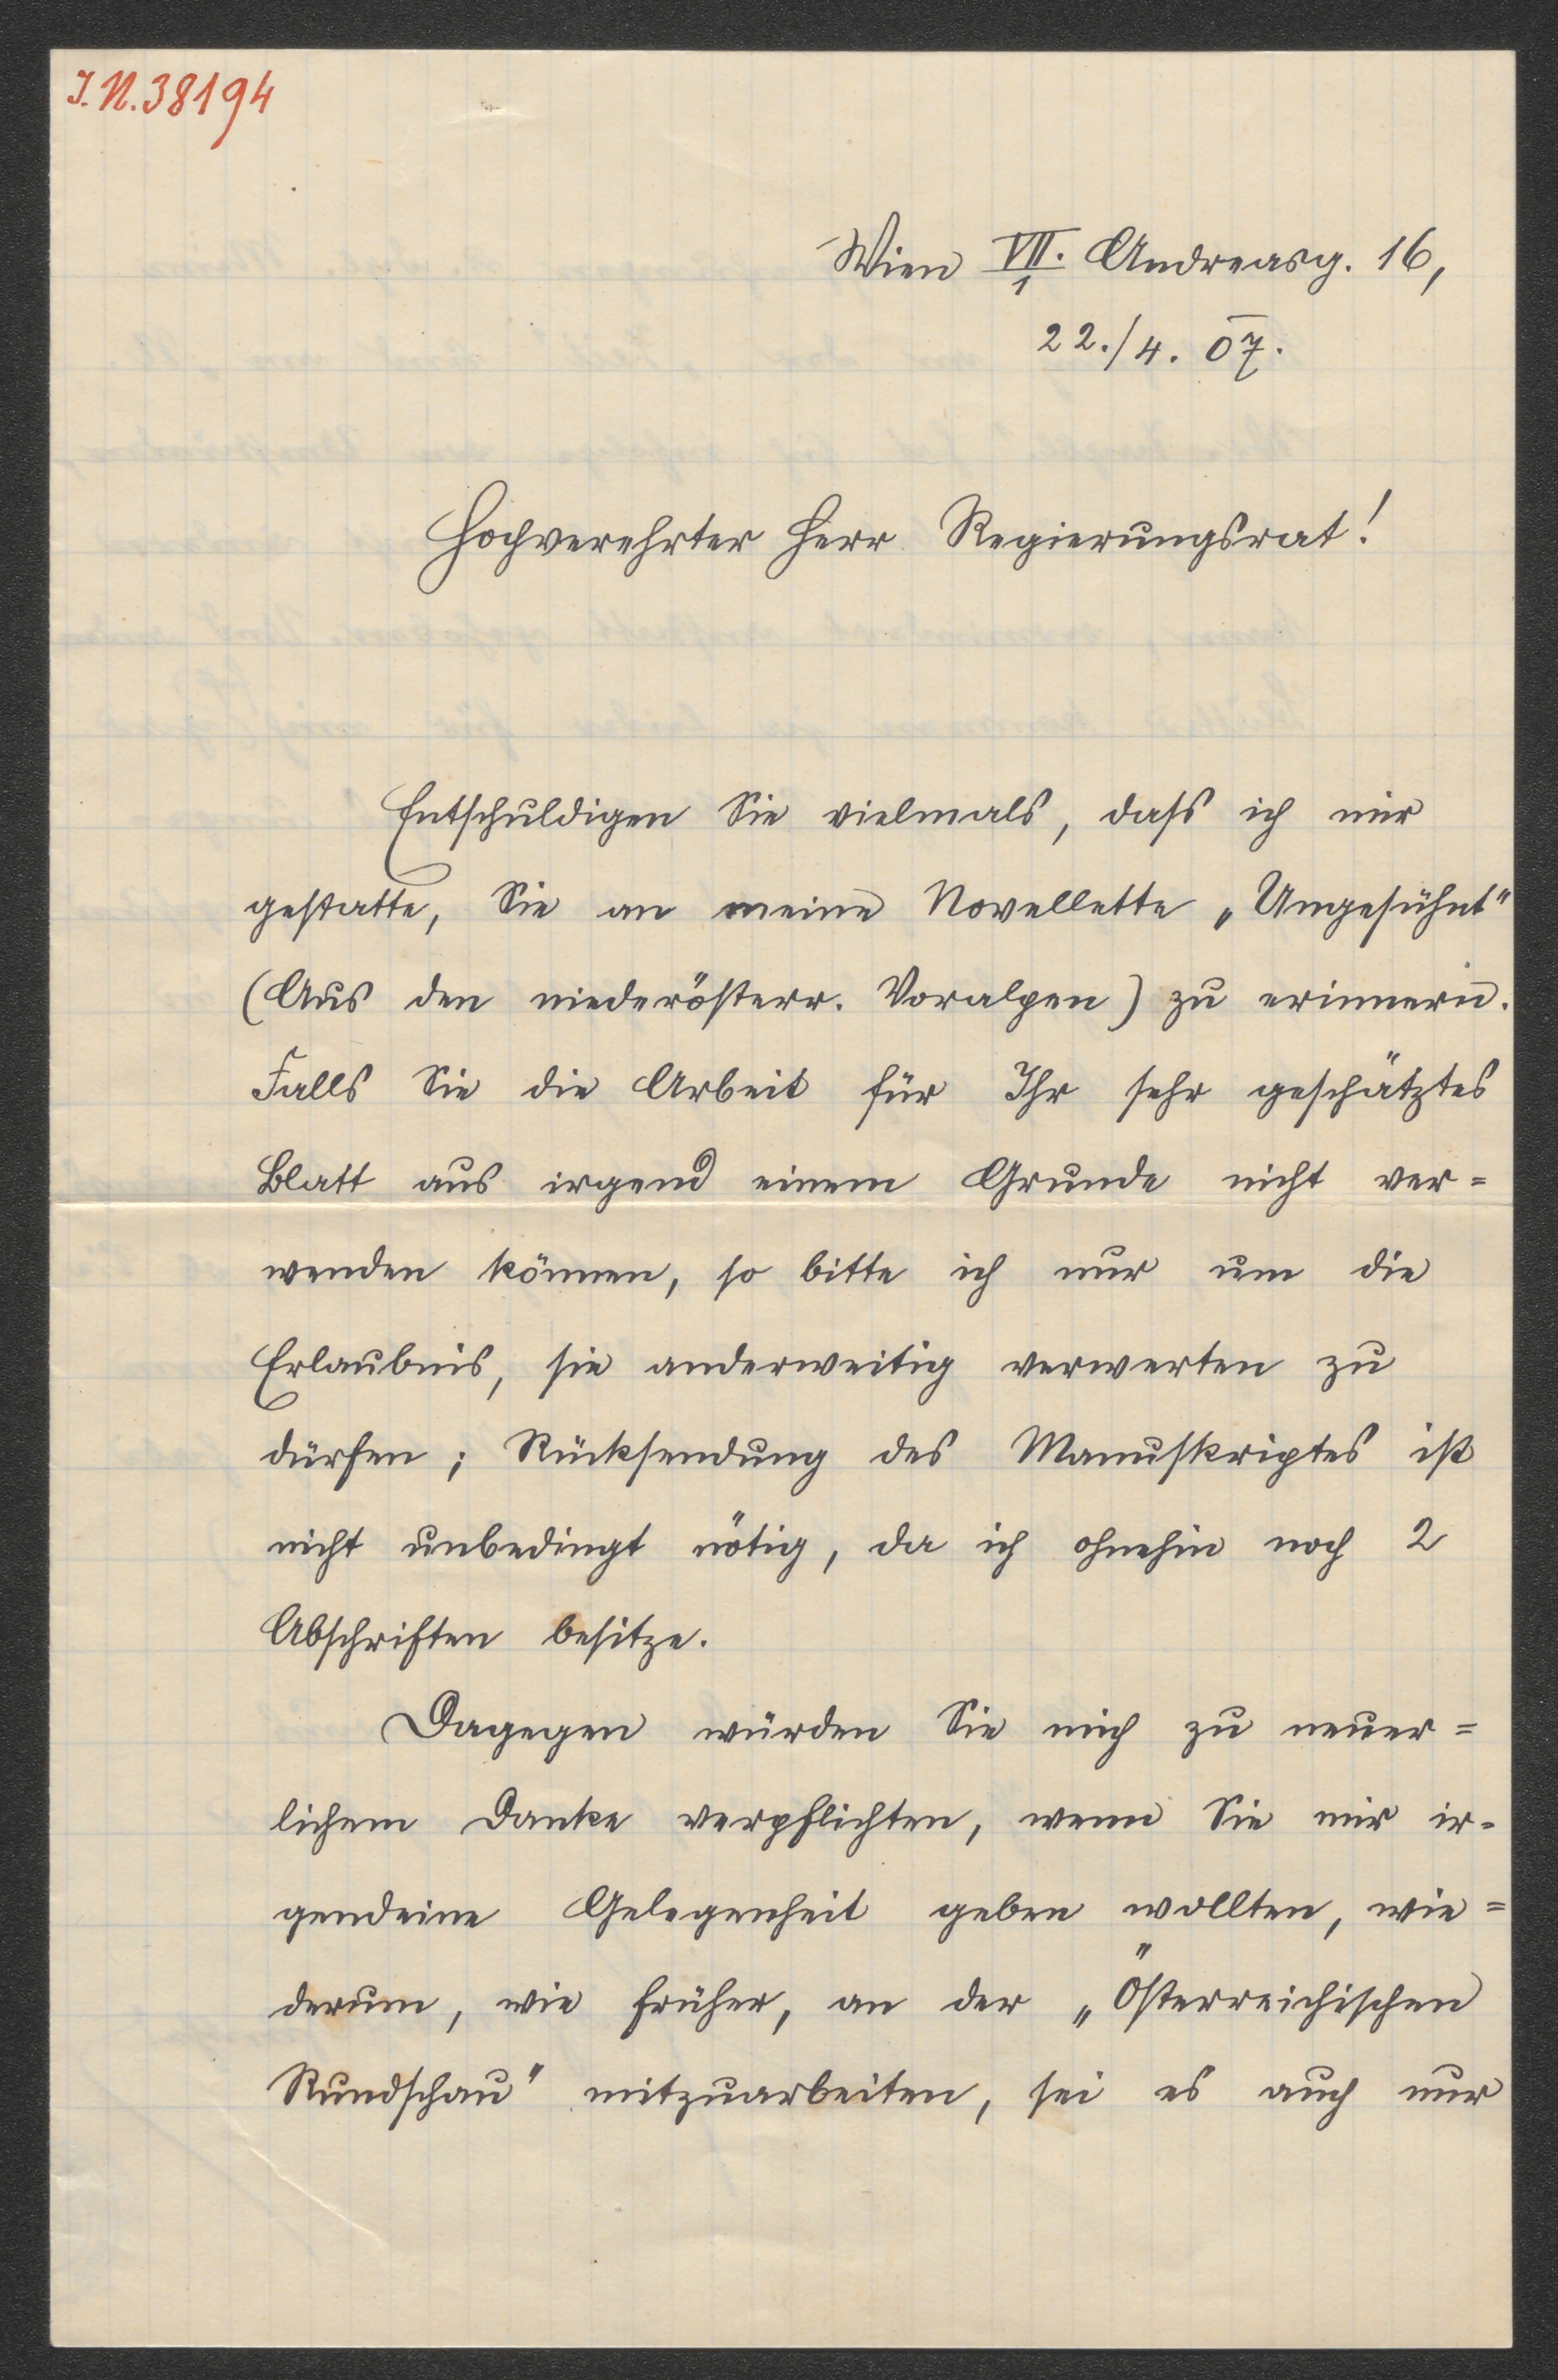 I.N. 38194
Wien VII./1 Andreasg. 16,
22./4. 07.
Hochverehrter Herr Regierungsrat!
Entschuldigen Sie vielmals, dass ich mir
gestatte, Sie an meine Novellette „Ungesühnt"
(Aus den niederösterr. Voralpen) zu erinnern.
Falls Sie die Arbeit für Ihr sehr geschätztes
Blatt aus irgend einem Grunde nicht ver=
wenden können, so bitte ich nur um die
Erlaubnis, sie anderweitig verwerten zu
dürfen; Rücksendung des Manuskriptes ist
nicht unbedingt nötig, da ich ohnehin noch 2
Abschriften besitze.
Dagegen würden Sie mich zu neuer=
lichem Danke verpflichten, wenn Sie mir ir=
gendeine Gelegenheit geben wollten, wie=
derum, wie früher, an der „Österreichischen
Rundschau" mitzuarbeiten, sei es auch nur